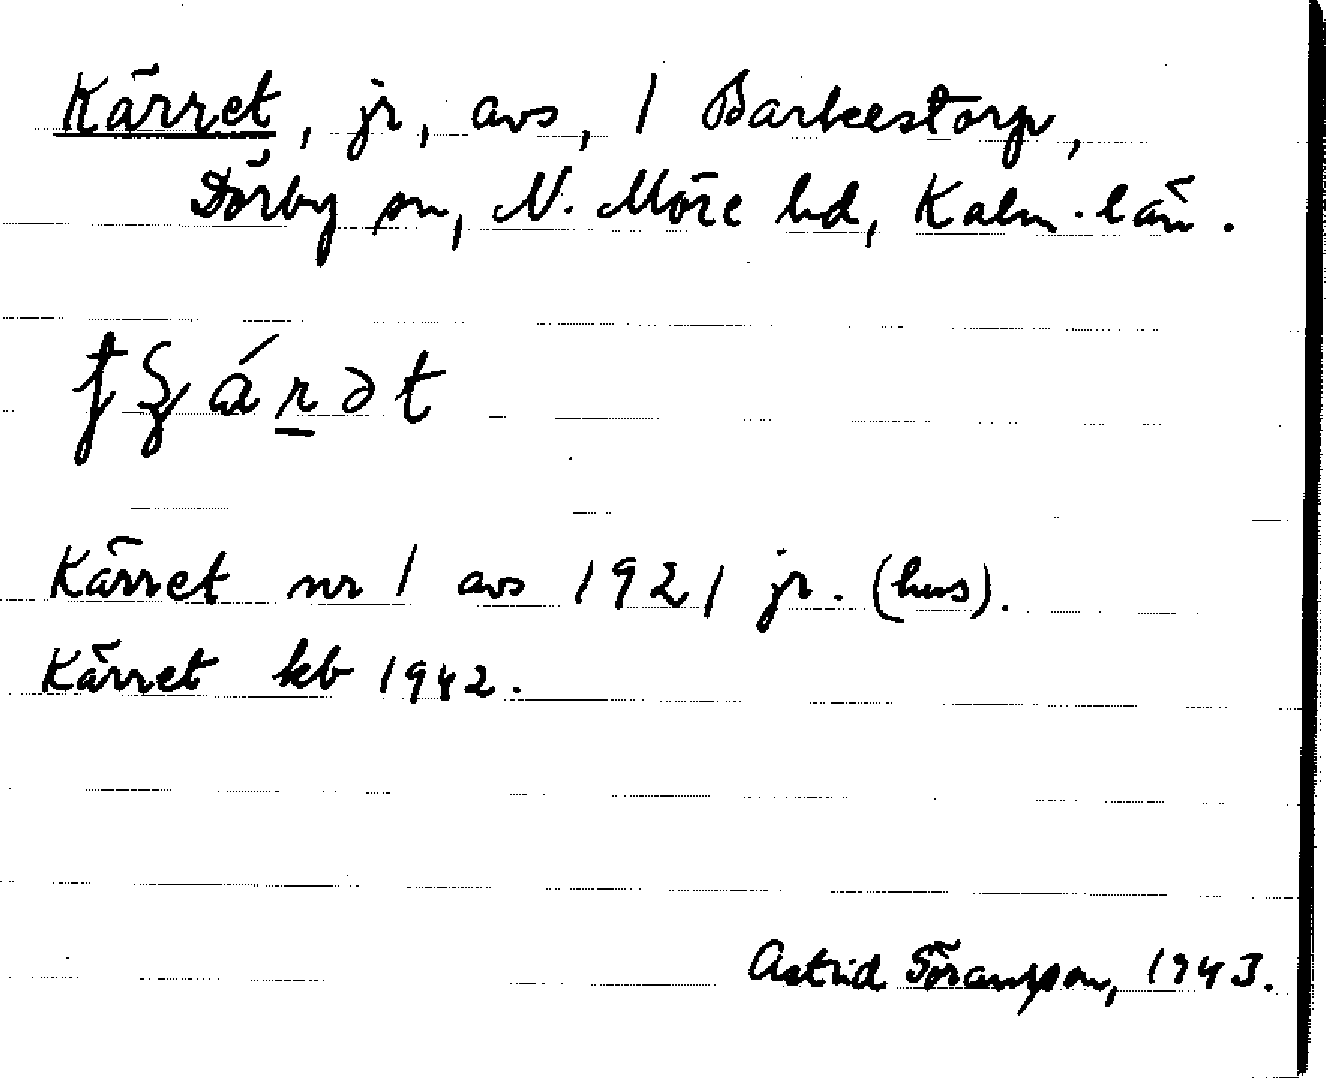 Kärret, jr, avs, 1 Barkestorp,
Dörby sn, N. Möre hd, Kalm. län.
Kärret nr 1 avs 1921 jr. (hus).
Kärret kb 1942.
Astrid Göransson, 1943.